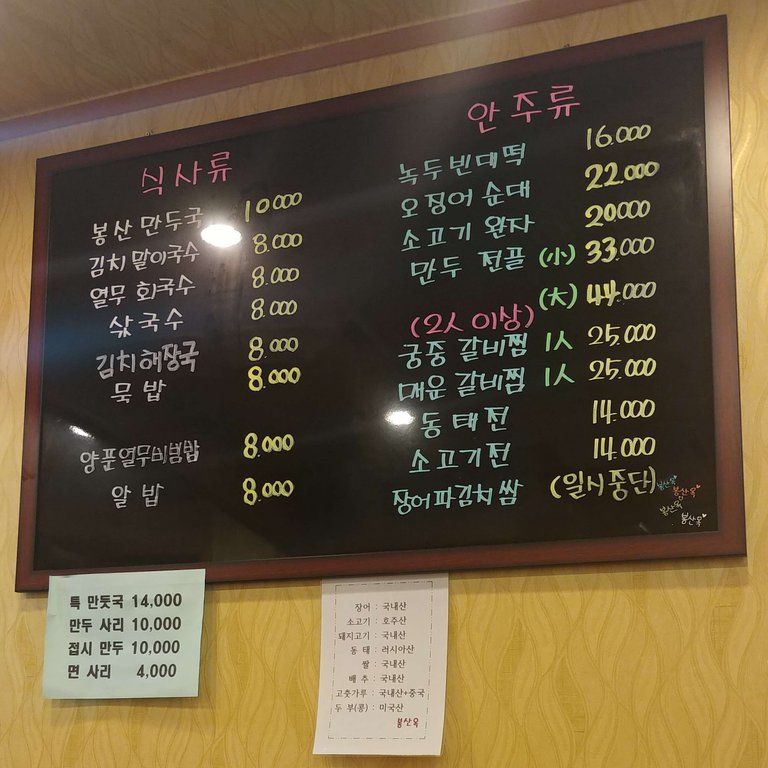 식사류
봉산 만두국 10.000
김치 말이국수 8.000
열무 회국수 8.000
삯국수 8.000
김치해장국 8.000
묵밥 8.000
양푼열무비빔밥 8.000
알 밥 8.000
안주류
녹두빈대떡 16.000
오징어 순대 22.000
소고기 완자 20.000
만두 전골 (小) 33.000
(大) 44.000
(2人 이상)
궁중 갈비찜 1人 25.000
매운 갈비찜 1人 25.000
동태전 14.000
소고기전 14.000
장어파김치쌈 (일시중단)
봉산옥
봉산옥
봉산옥
봉산옥
특 만둣국 14,000
만두 사리 10,000
접시 만두 10,000
면 사리 4,000
장어 : 국내산
소고기 : 호주산
돼지고기 : 국내산
동 태 : 러시아산
쌀 : 국내산
배 추 : 국내산
고춧가루 : 국내산+중국
두 부(콩) : 미국산
봉산옥